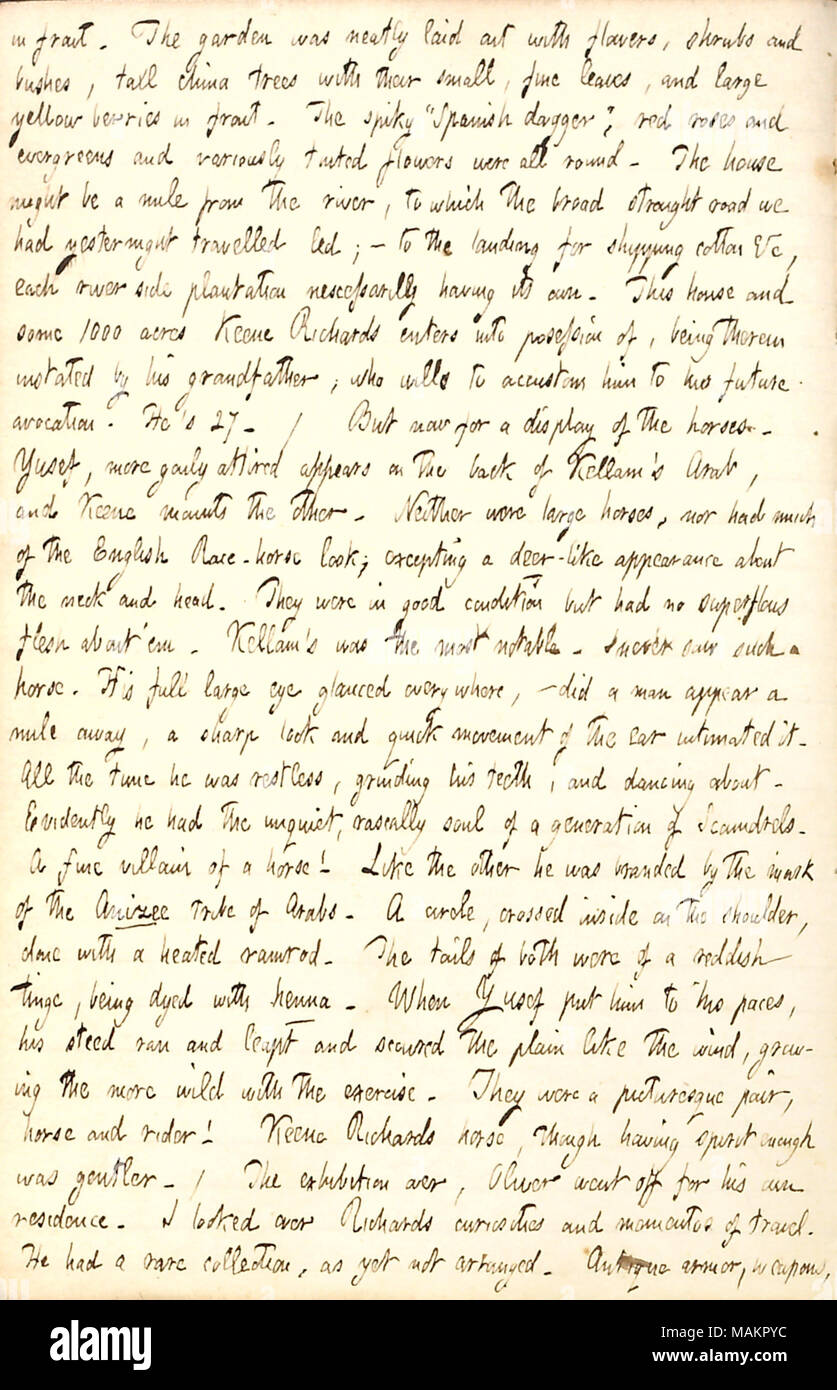 in front. The garden was neatly laid out with flowers, shrubs and
bushes, tall china trees with their small, fine leaves, and large
yellow berries in front. The spiky "Spanish dagger", red roses and
evergreens and variously tinted flowers were all round. The house
might be a mile from the river, to which the broad straight road we
had yesternight travelled led; — to the landing for shipping cotton &c,
each river side plantation nescessarily having its own. This house and
some 1000 acres Keene Richards enters into posession of, being therein
instated by his grandfather, who wills to accustom him to his future
avocation. He's 27. / But now for a display of the horses.
Yusef, more gaily attired appears on the back of Kellam's Arab,
and Keene mounts the other. Neither were large horses, nor had much
of the English Race-horse look; excepting a deer-like appearance about
the neck and head. They were in good condition but had no superflous
flesh about 'em. Kellam's was the most notable. I never saw such a
horse. His full large eye glanced everywhere, — did a man appear a
mile away, a sharp look and quick movement of the ear intimated it.
All the time he was restless, grinding his teeth, and dancing about.
Evidently he had the unquiet, rascally soul of a generation of Scoundrels.
A fine villain of a horse! Like the other he was branded by the mark
of the Anizee tribe of Arabs. A circle, crossed inside on the shoulder,
done with a heated ramrod. The tails of both were of a reddish
tinge, being dyed with henna. When Yusef put him to his paces,
his steed ran and leapt and scoured the plain like the wind, grow-
ing the more wild with the exercise. They were a picturesque pair,
horse and rider! Keene Richards horse, though having spirit enough
was gentler. / The exhibition over, Oliver went off for his own
residence. I looked over Richards curiosities and momentos of travel.
He had a rare collection, as yet not arranged. Antique armor, weapons,
alamy
Image ID: MAKPYC
www.alamy.com